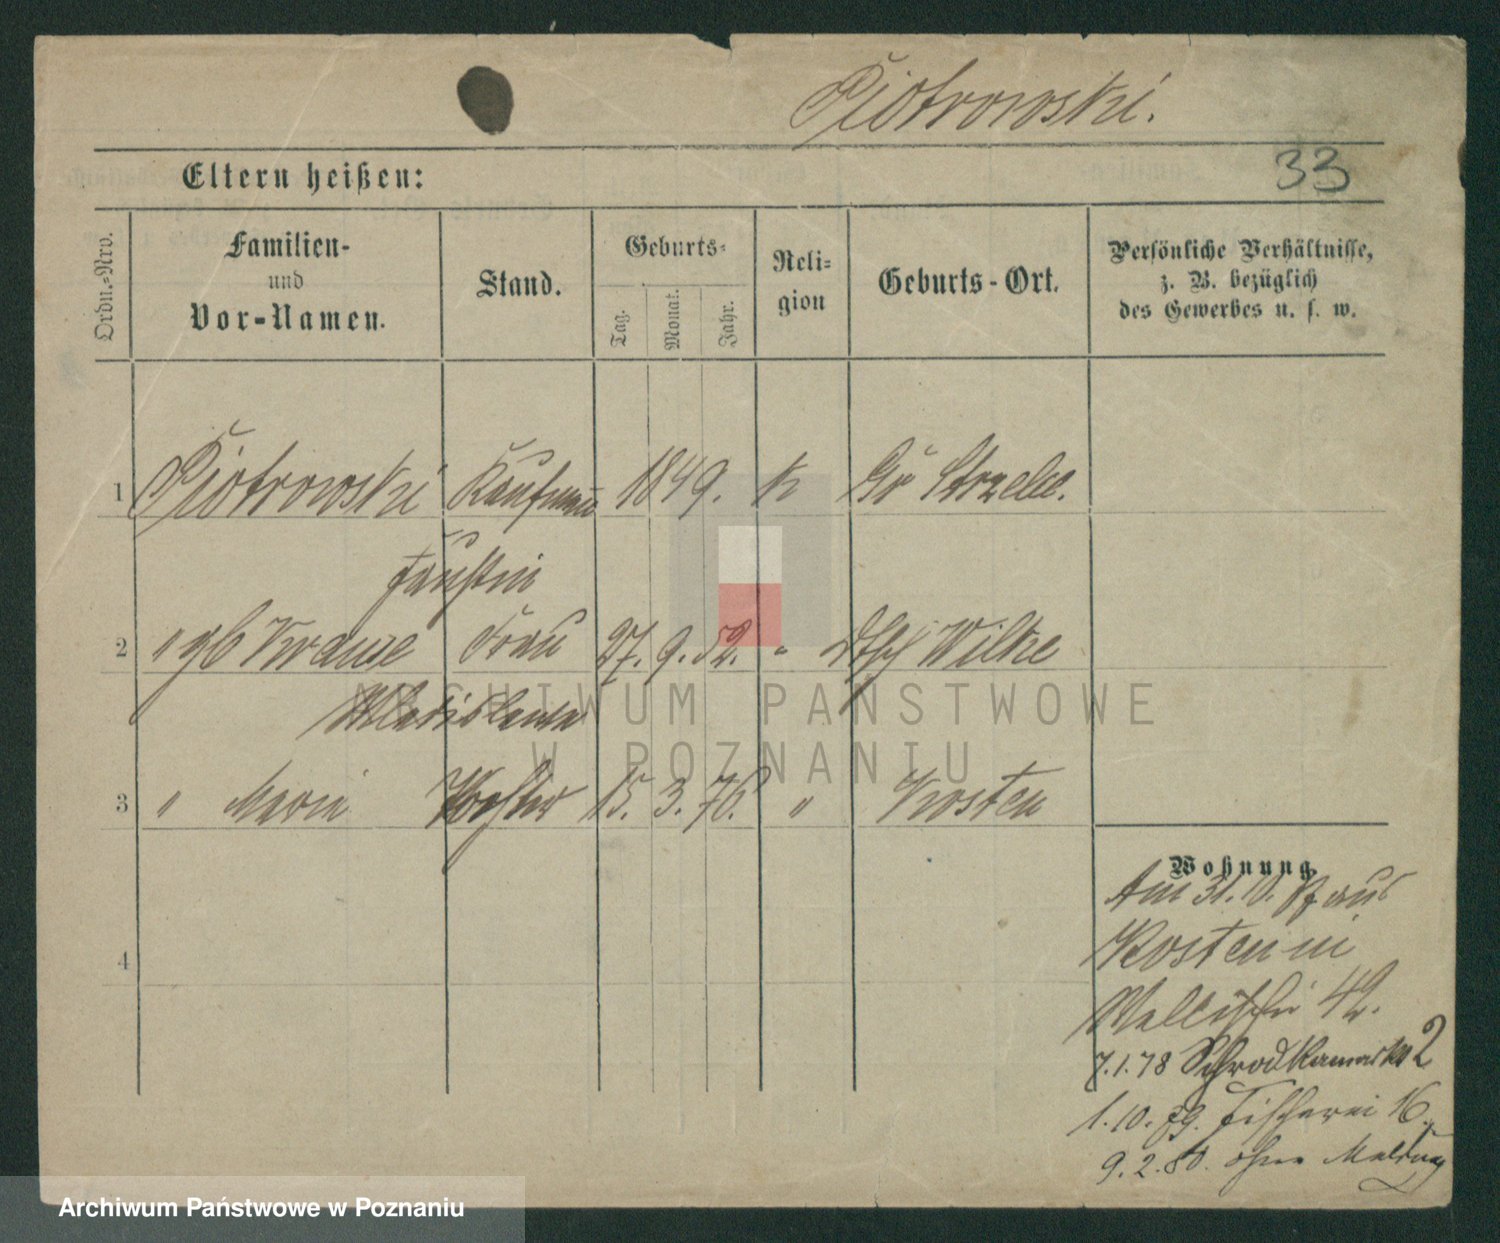 Piotrowski.
Eltern heißen:
33
Ordn.-Nro.
Familien-
und
Vor-Namen.
Stand.
Geburts-
Tag.
Monat.
Jahr.
Reli-
gion
Geburts-Ort.
Persönliche Verhältnisse,
z. B. bezüglich
des Gewerbes u. s. w.
1 Piotrowski Kaufmann 1849. k Gr Strzelce.
Faustin
2 " gb Krause Frau 27. 9. 52. " Wilke
Wladislawa
3 " Maria Tochter 15. 3. 76. " Kosten
4
Wohnung
Am 31. 10. 77 aus
Kosten in
Wallischei 42.
7.1.78 Schrodkamarkt 2
1. 10. 79. Fischerei 16.
9. 2. 80. ohne Meldung
ARCHIWUM PAŃSTWOWE
W POZNANIU
Archiwum Państwowe w Poznaniu